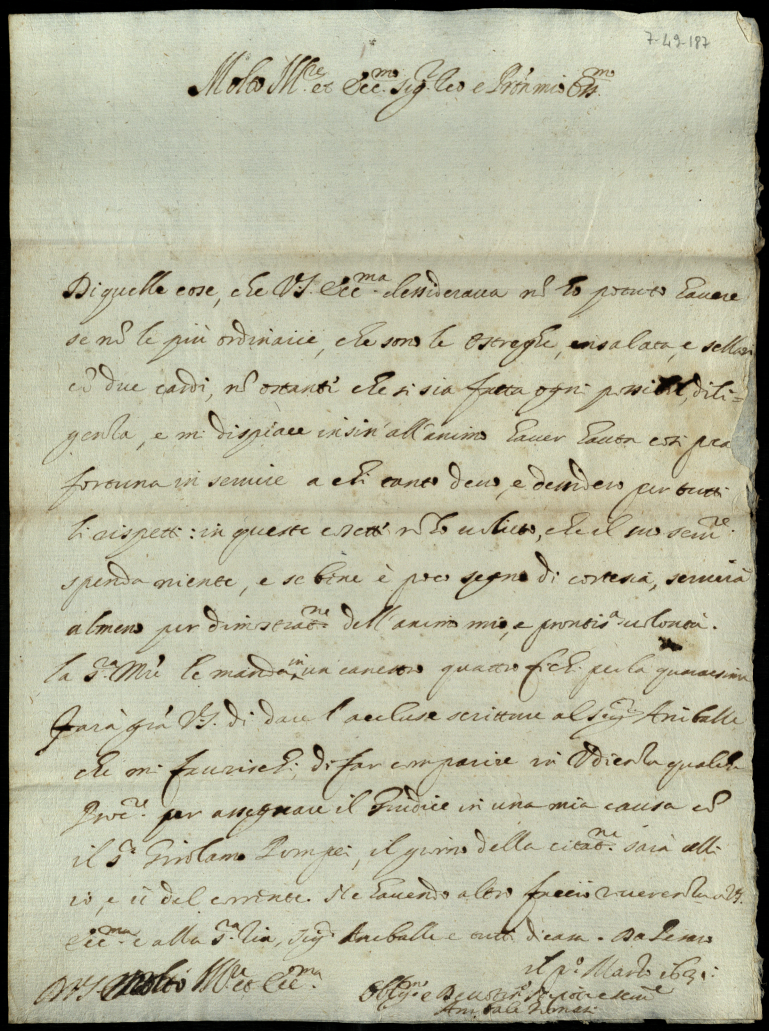 7-49-187
Molto Ill.re et Ecc.mo sig.r Zio e Pron mio Oss.mo
Di quelle cose, che V.S. Ecc.ma dessiderava nō ho potuto havere
se nō le più ordinarie, che sono le ostreghe, insalata, e sellari
cō due cardi, nō ostante che si sia fatta ogni possibile, dili=
genza, e mi dispiace insin' all'animo haver hauta così poca
fortuna in servire a chi tanto devo, e desidero per tutti
li rispetti: in queste cosette nō ho voluto, che il suo ser.re
spenda niente, e se bene è poco segno di cortesia, servirà
almeno per dimostrat.ne dell'animo mio, e prontis.a volontà.
la S.ra M.re le manda in un canestro quattro fichi per la quaresima
Farà gra V.S. di dare l'accluse scritture al Sig.r Aniballe
che mi favorischi, di far comparire in Udienza qualche
Proc.re per assegnare il Giudice in una mia causa cō
il S.r Girolamo Pompei, il giorno della citat.ne sarà alli
10, e 11 del corrente. Ne havendo altro faccio riverenza a V.S.
Ecc.ma e alla S.ra Zia, Sig.r Aniballe e tutti di casa. Da Pesaro
il p.o Marzo 163
Di V.S. Molto Ill.re et Ecc.ma
Obblig.mo e Devotiss.o Nipote e ser.re